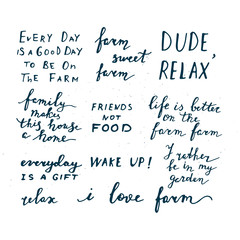 EVERY DAY
IS A GOOD DAY
TO BE ON
THE FARM
farm
sweet
farm
DUDE,
RELAX
family
makes
this house
a home
FRIENDS
NOT
FOOD
life is better
on the
farm farm
everyday
IS A GIFT
WAKE UP!
I'd rather
be in my
garden
relax
i love farm